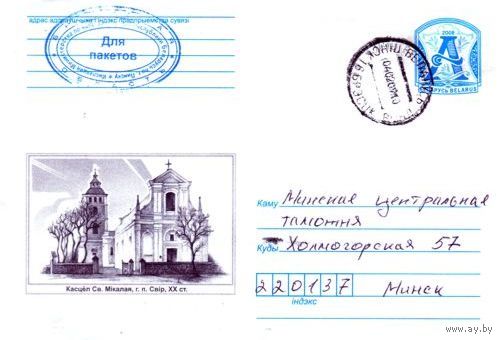 адрас адпраўшчыка і індэкс прадпрыемства сувязі
Для
пакетов
2008
БЕЛАРУСЬ BELARUS
Каму Минская центральная
таможня
Куды Холмогорская 57
220137 Минск
індэкс
Касцёл Св. Мікалая, г. п. Свір, XX ст.
www.ay.by